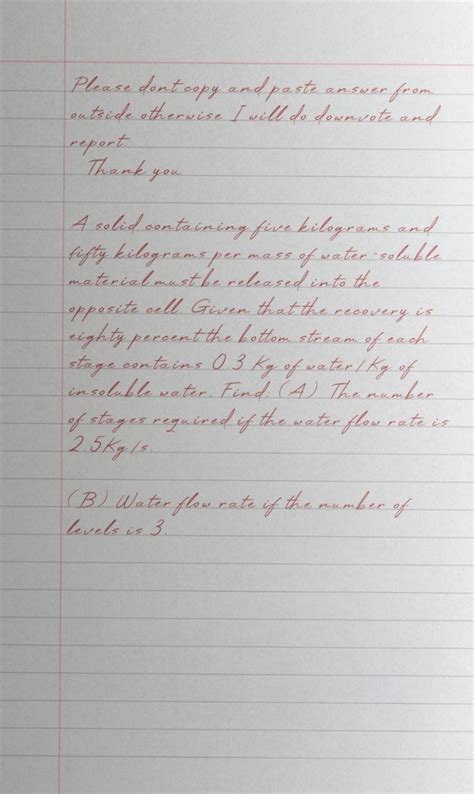 Please dont copy and paste answer from
outside otherwise I will do downvote and
report.
Thank you
A solid containing five kilograms and
fifty kilograms per mass of water-soluble
material must be released into the
opposite cell. Given that the recovery is
eighty percent the bottom stream of each
stage contains 0.3 Kg of water/Kg of
insoluble water. Find. (A) The number
of stages required if the water flow rate is
2.5Kg/s.
(B) Water flow rate if the number of
levels is 3.